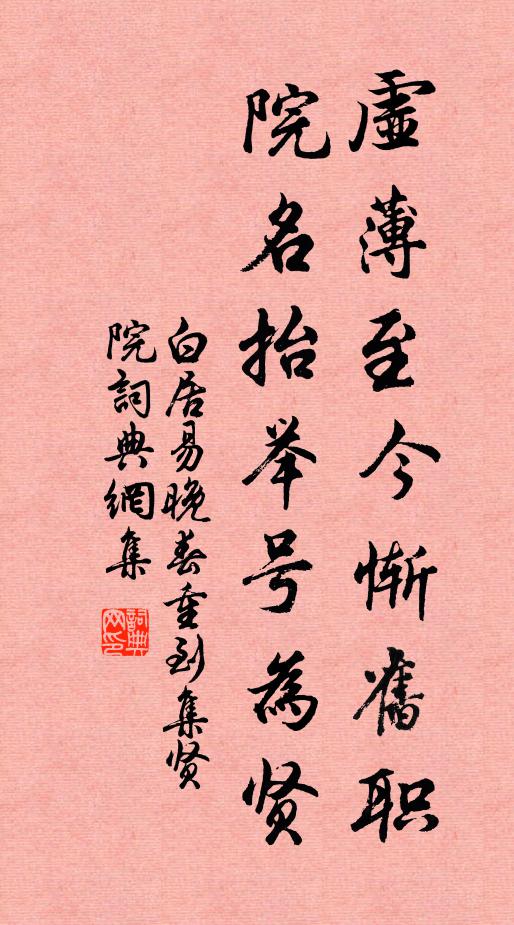 虚薄至今惭舊职
院名抬举号為贤
白居易晚春重到集贤
院詞典網集
詞典网印